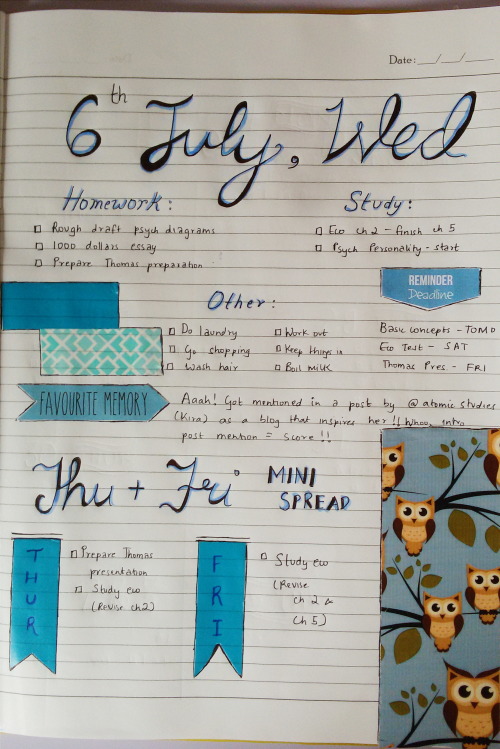 Date: __/__/__
6th July, Wed
Homework:
Rough draft psych diagrams
1000 dollars essay
Prepare Thomas preparation
Study:
Eco ch 2 - finish ch 5
Psych Personality - start
REMINDER
Deadline
Basic concepts - TOMO
Eco Test - SAT
Thomas Pres - FRI
Other:
Do laundry
Go shopping
Wash hair
Work out
Keep things in
Boil milk
FAVOURITE MEMORY
Aaah! Got mentioned in a post by @atomic studies
(Kira) as a blog that inspires her!! Whoo, intro
post mention = score!!
Thu + Fri
MINI
SPREAD
THUR
Prepare Thomas
presentation
Study eco
(Revise ch2)
FRI
Study eco
(Revise
ch 2 &
ch 5)